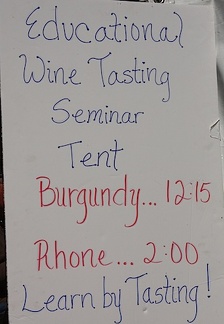 Educational
Wine Tasting
Seminar
Tent
Burgundy... 12:15
Rhone... 2:00
Learn by Tasting!